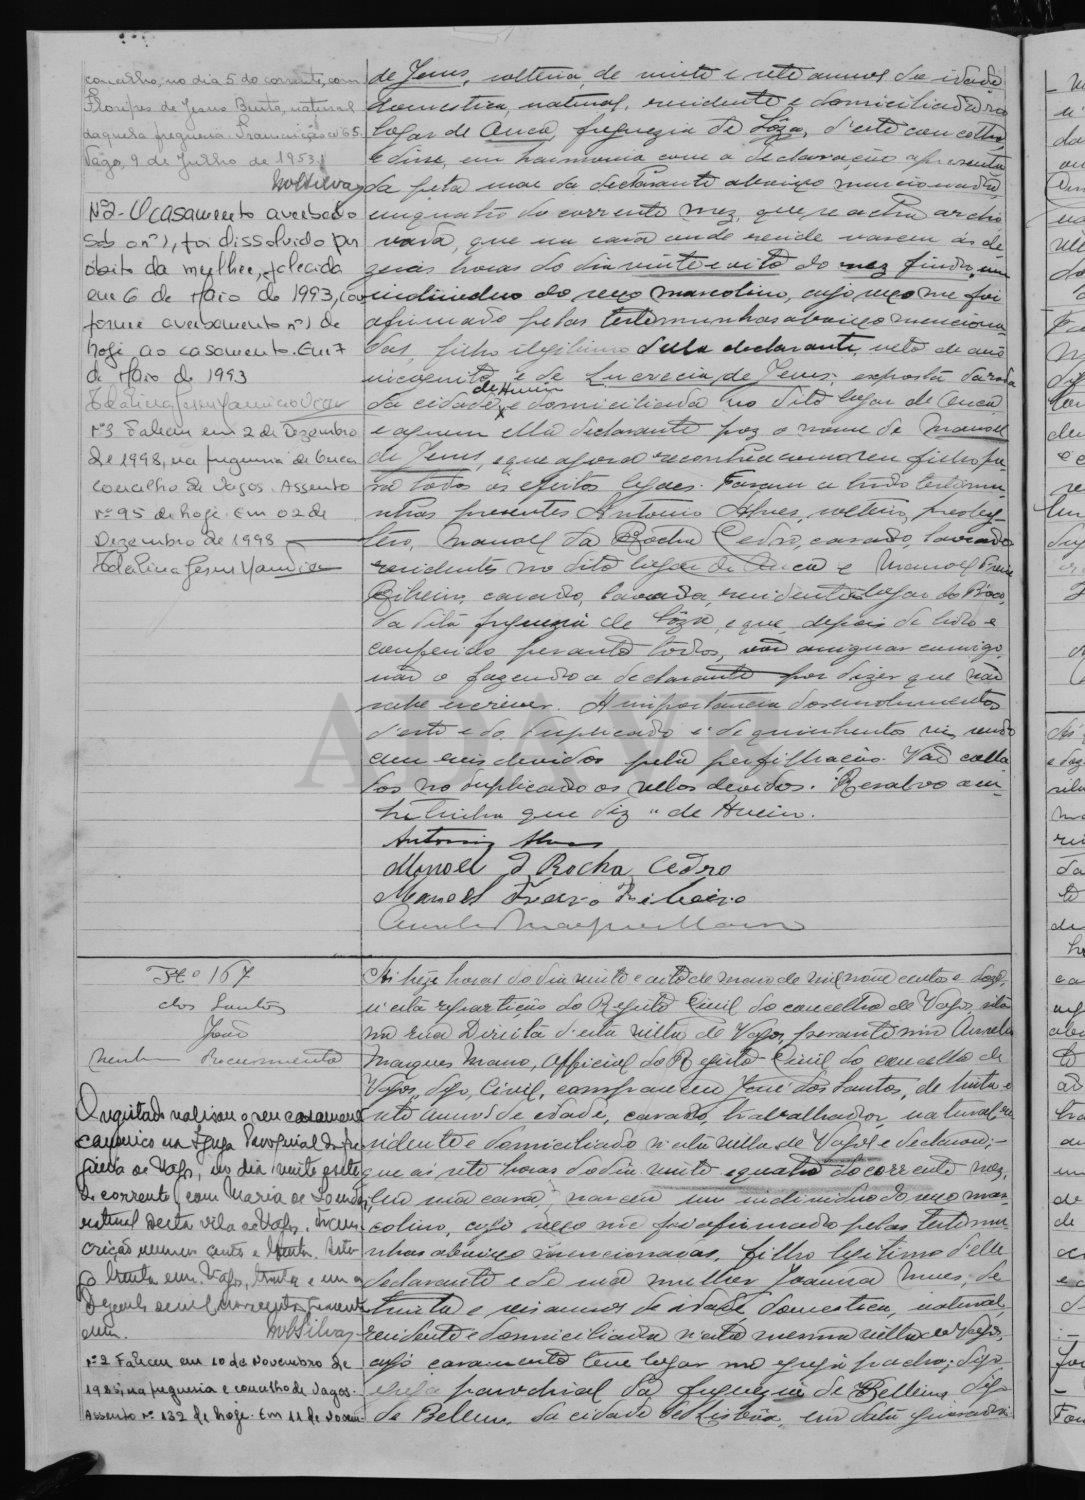 concelho, no dia 5 do corrente, com
Floripes de Jesus Busto, natural
daquela freguesia. Transcrição nº 65.
Vagos, 9 de Julho de 1953.
MdSilva
Nº 2 - O casamento averbado
sob o nº 1, foi dissolvido por
óbito da mulher, falecida
em 6 de Maio de 1993, con
forme averbamento nº 1 de
hoje ao casamento. Em 7
de Maio de 1993
Nº 3 Faleceu em 2 de Dezembro
de 1998, na freguesia de Ouca
concelho de Vagos. Assento
nº 95 de hoje. Em 02 de
Dezembro de 1998
de Jesus, solteira, de vinte e sete annos de idade
domestica, natural, residente e domiciliada no
logar de Ouca, freguezia de Sôza, d'este concelho
e disse, em harmonia com a declaração apresenta
da pela mãe da declarante abaixo mencionada,
em quatro do corrente mez, que se acha archi
vada, que na casa onde reside nasceu ás de
zeseis horas do dia vinte e oito do mez findo, um
individuo do sexo masculino, cujo sexo me foi
afirmado pelas testemunhas abaixo menciona
das, filho ilegitimo d'ella declarante, neto de avô
incognito e de Lucrecia de Jesus, exposta da roda
de Aveiro
da cidade, e domiciliada no dito logar de Ouca
e a quem ella declarante poz o nome de Manoel
de Jesus, e que agora reconhece como seu filho pa
ra todos os efeitos legaes. Foram a tudo testemu
nhas presentes Antonio Alves, solteiro, presby
tero, Manoel da Rocha Cedro, casado, lavrador
residentes no dito logar de Ouca e Manoel Freire
Ribeiro, casado, lavrador, residente no logar do Boco,
da dita freguezia de Sôza, e que, depois de lido e
conferido perante todos, vão assignar comigo,
não o fazendo a declarante por dizer que não
sabe escrever. A importancia dos emolumentos
d'este e do duplicado é de quinhentos reis, sendo
cem reis devidos pela perfilhação. Vão colla
dos no duplicado os sellos devidos. Resalvo a en
trelinha que diz "de Aveiro.
Antonio Alves
Manoel d Rocha Cedro
Manoel Freire Ribeiro
Aurelio Marques Mano
ADAVR
Nº 167
dos Santos
João
Nenhum Documento
O registado realizou o seu casamento
canonico na Igreja Paroquial da fre
guesia de Vagos, no dia vinte e sete
do corrente, com Maria de Lourdes,
natural desta vila de Vagos. Trans
crição numero cento e trinta.
MdSilva
Nº 2 Faleceu em 10 de Novembro de
1985, na freguesia e concelho de Vagos.
Assento nº 132 de hoje. Em 11 de Novem
Ás treze horas do dia vinte e oito de maio de mil nove centos e doze,
n'esta repartição do Registo Civil do concelho de Vagos, sita
na rua Direita d'esta villa de Vagos, perante mim Aurelio
Marques Mano, Official do Registo Civil do concelho de
Vagos, digo, Civil, compareceu José dos Santos, de trinta e
sete annos de edade, casado, trabalhador, natural, re
sidente e domiciliado n'esta villa de Vagos e declarou:-
que ás sete horas do dia vinte e quatro do corrente mez,
em sua casa, nasceu um individuo do sexo mas
colino, cujo sexo me foi afirmado pelas testemu
nhas abaixo mencionadas, filho legitimo d'elle
declarante e de sua mulher Joanna Nunes, de
trinta e seis annos de idade, domestica, natural,
residente e domiciliada n'esta mesma villa de Vagos,
cujo casamento teve logar na egreja digo
egreja parochial da freguezia de Bellem, digo
de Belem, da cidade de Lisboa, em data